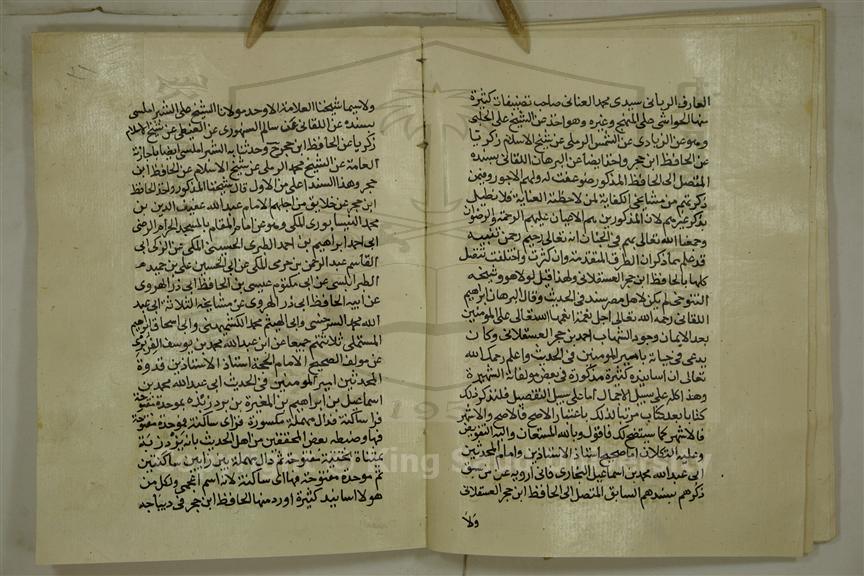 العارف الرباني سيدي محمد العناني صاحب تصنيفات كثيرة
منها الحواشي على المنهج وغيره وهو اخذ عن الشيخ علي الحلبي
وهو عن الزيادي عن الشمس الرملي عن شيخ الاسلام زكريا
عن الحافظ ابن حجر واخذ ايضا عن البرهان اللقاني بسنده
المتصل الى الحافظ المذكور ضوعفت له ولهم الاجور وفيمن
ذكرتهم من مشايخي الكفاية لمن لاحظته العناية فلا نطيل
بذكر غيرهم لان المذكورين هم الاعيان عليهم الرحمة والرضوان
وجمعنا الله تعالى بهم في الجنان انه تعالى رحيم رحمن تنبيه
قد علم بما ذكر ان الطرق المتقدمة وان كثرت واختلفت تتصل
كلها بالحافظ ابن حجر العسقلاني ولهذا قيل لولا هو وشيخه
التنوخي لم يكن لاهل مصر سند في الحديث وقال البرهان ابراهيم
اللقاني رحمه الله تعالى اجل نعمة انعمها الله تعالى على المومنين
بعد الايمان وجود الشهاب احمد بن حجر العسقلاني وكان
يدعى في حياته بامير المومنين في الحديث واعلم رحمك الله
تعالى ان اسانيده كثيرة مذكورة في بعض مولفاته الشهيرة
وهذا كله على سبيل الاجمال اما على سبيل التفصيل فلنذكر ذلك
كتابا بعد كتاب مرتبا لذلك باعتبار الاصح فالاصح والاشهر
فالاشهر كما ستقف لك فاقول وبالله المستعان واليه التفويض
وعليه التكلان اما صحيح استاذ الاستاذين وامام المحدثين
ابي عبد الله محمد بن اسماعيل البخاري فاني ارويه عن من سبق
ذكرهم بسندهم السابق المتصل الى الحافظ ابن حجر العسقلاني
ولا
ولا سيما شيخنا العلامة الاوحد مولانا الشيخ علي الشبراملسي
بسنده عن اللقاني عن سالم السنهوري عن الغيطي عن شيخ الاسلام
زكريا عن الحافظ ابن حجر ح وحدثنا به الشبراملسي ايضا باجازته
العامة عن الشيخ محمد الرملي عن شيخ الاسلام عن الحافظ ابن
حجر وهذا السند اعلى من الاول قال شيخنا المذكور واخذ الحافظ
ابن حجر عن خلايق من اجلهم الامام عبد الله عفيف الدين بن
محمد النيسابوري المكي وهو عن امام المقام بالمسجد الحرام الرضي
ابي احمد ابراهيم بن احمد الطبري الحسيني المكي عن الزكي ابي
القاسم عبد الرحمن بن حرمي المكي عن ابي الحسين علي بن حميد
الطرابلسي عن ابي مكتوم عيسى بن الحافظ ابي ذر الهروي
عن ابيه الحافظ ابي ذر الهروي عن مشايخه الثلاثة ابي عبد
الله محمد السرخسي وابي الهيثم محمد الكشميهني وابي اسحاق ابراهيم
المستملي ثلاثتهم جميعا عن ابي عبد الله محمد بن يوسف الفربري
عن مولف الصحيح الامام الحجة استاذ الاستاذين قدوة
المحدثين امير المومنين في الحديث ابي عبد الله محمد بن
اسماعيل بن ابراهيم بن المغيرة بن بردزبه بموحدة مفتوحة
فرا ساكنة فدال مهملة مكسورة فزاي ساكنة فموحدة مفتوحة
فها وضبطه بعض المحققين من اهل الحديث بانه يزدزبة
بمثناة تحتية مفتوحة ثم دال مهملة بين زايين ساكنتين
ثم موحدة مفتوحة فها الى ساكنة لانه اسم اعجمي ولكل من
هولا اسانيد كثيرة اورد منها الحافظ ابن حجر في ديباجه